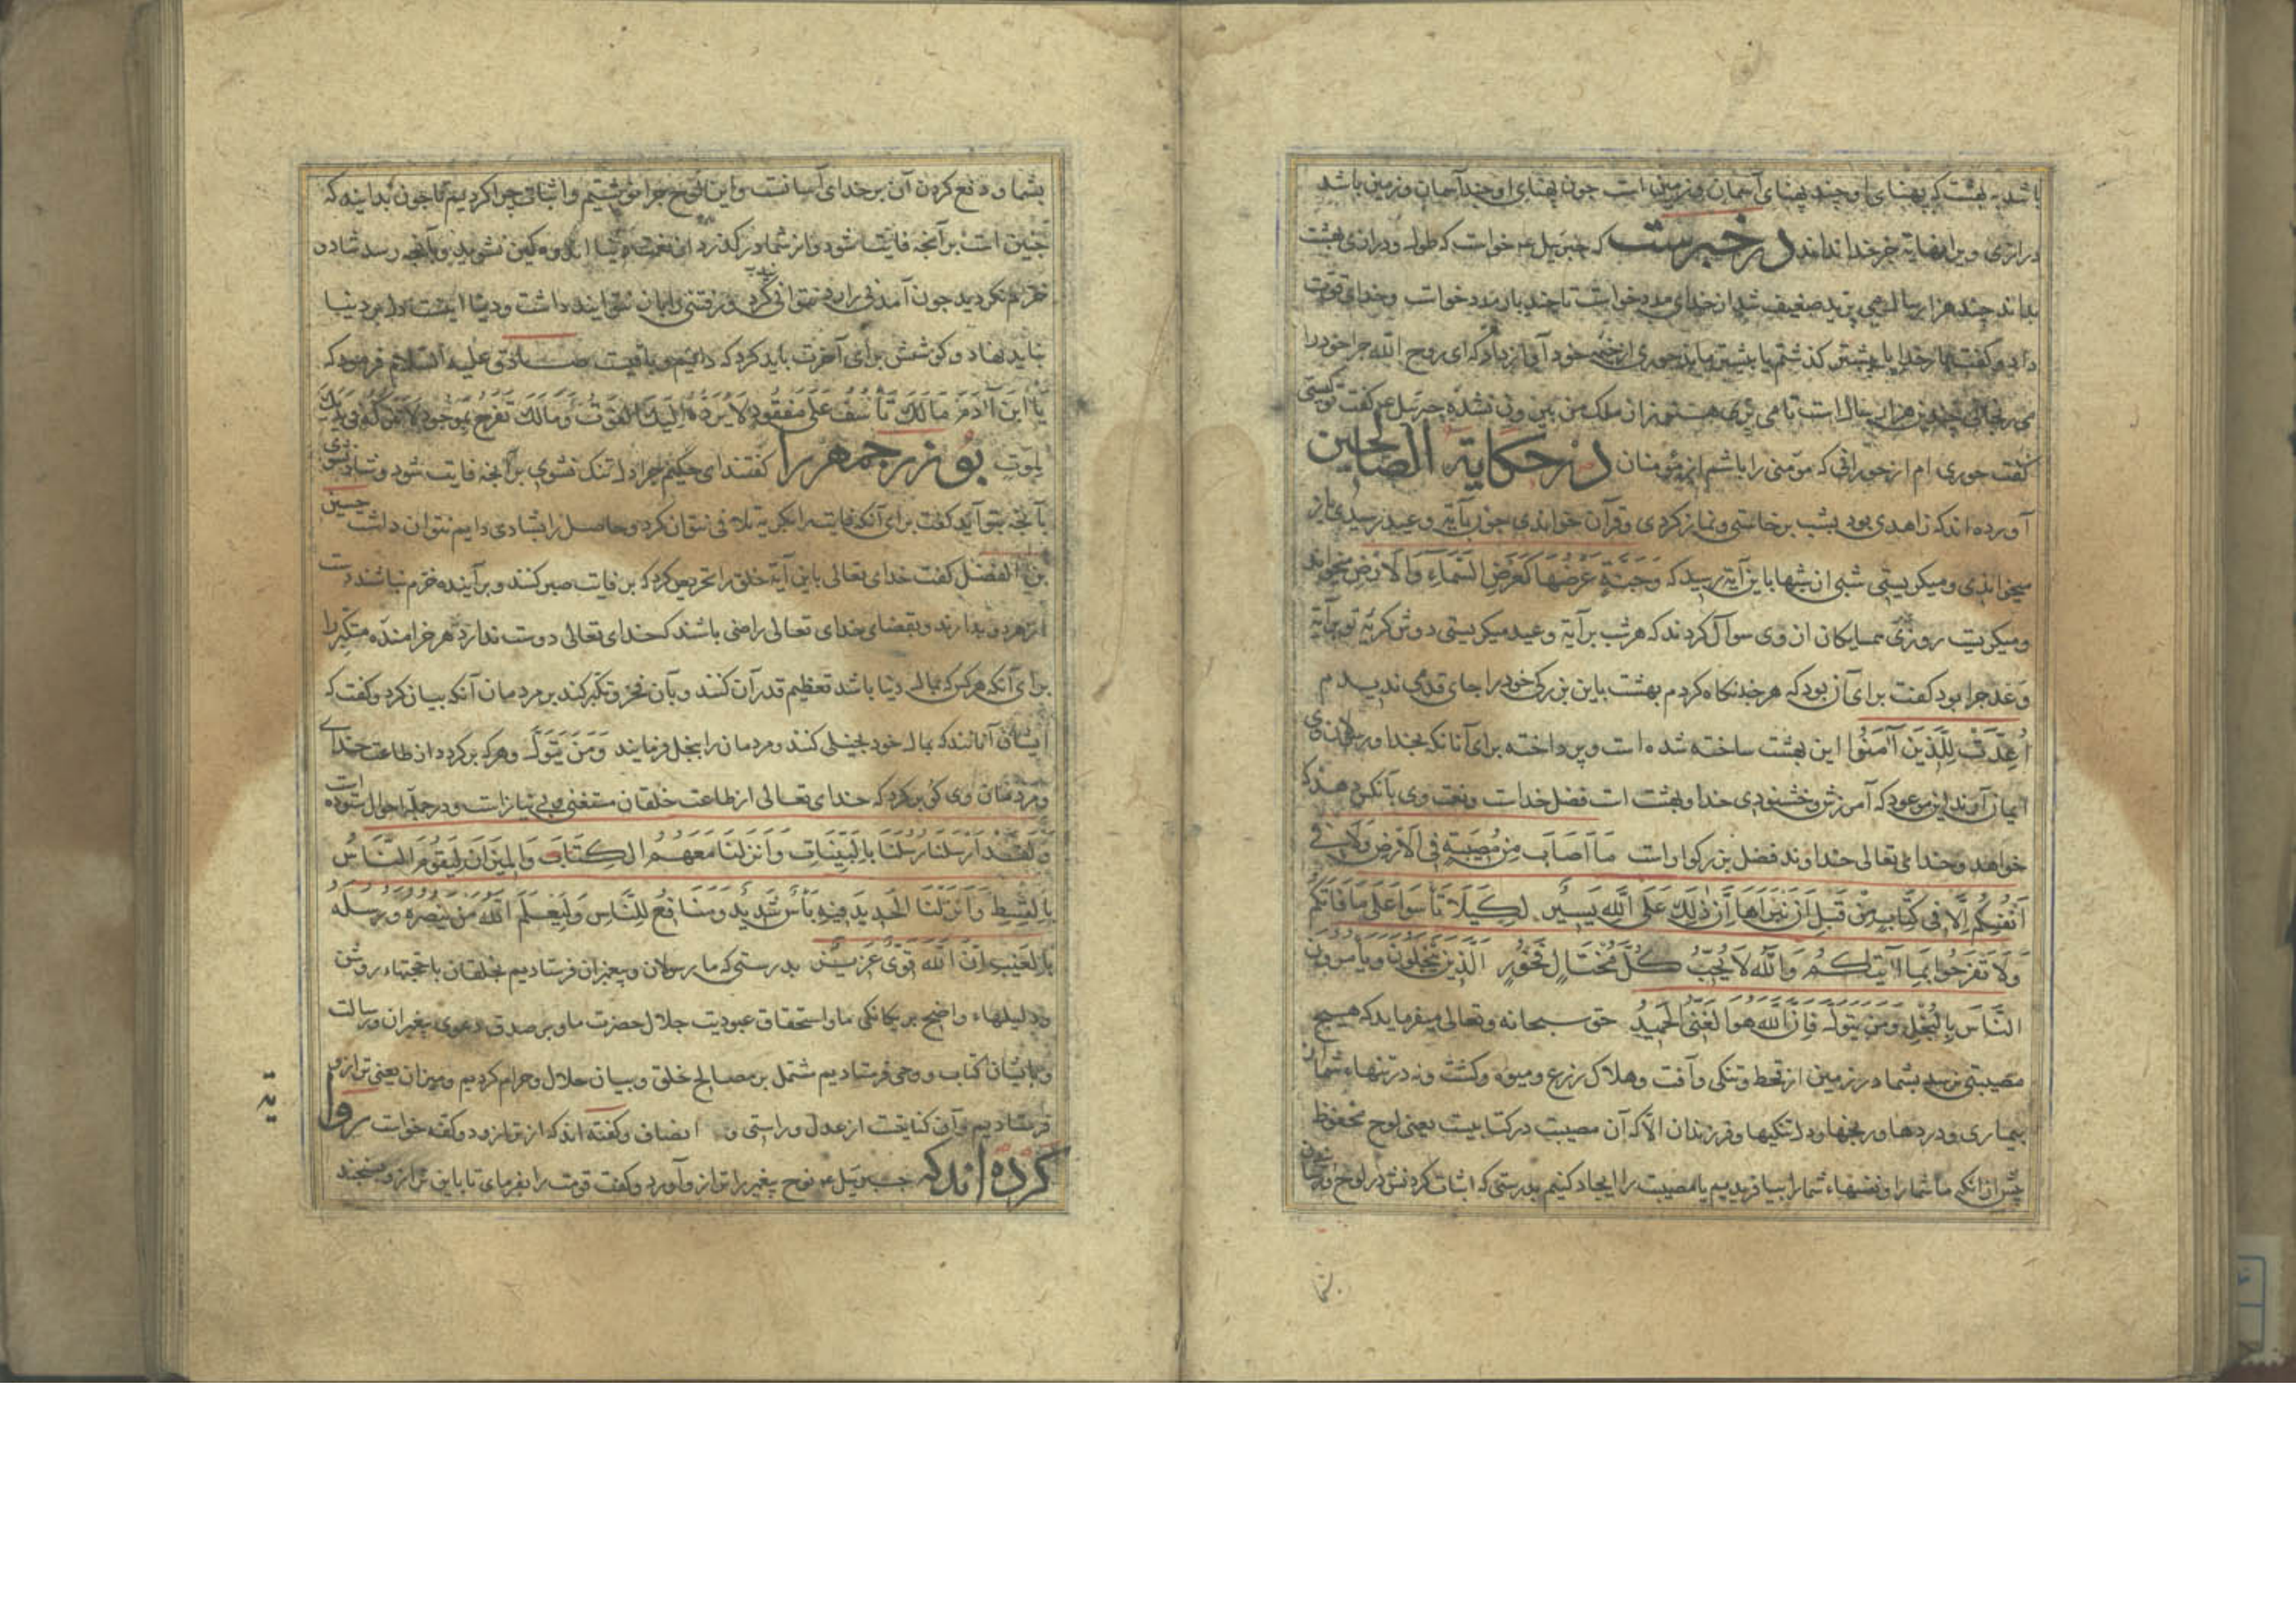 باشد بهشت که پهنای او چند پهنای آسمان و زمین است چون پهنای او چند آسمان و زمین باشد
درازی ویرا نهایة جز خدا نداند در خبرست که جبرئیل عم خواست که طول و درازی بهشت
بداند چند هزار سال می پرید ضعیف شد از خدای مدد خواست تا چند بار مدد خواست و خدای قوت
داد و گفت بار خدایا بیشتر گذشتم یا بیشتر ماند حوری از خیمه خود آواز داد که ای روح الله چرا خود را
می رنجانی چندین هزار سال است تا می پری هنوز از ملک من بیرون نشدهٔ جبرئیل عم گفت تو کیستی
گفت حوری ام از حورانی که مؤمنی را باشم از مؤمنان در حکایة الصالحین
آورده اند که زاهدی بود بشب برخاستی و نماز کردی و قرآن خواندی چون بآیة وعید رسیدی باز
میخواندی و میگریستی شبی از شبها باین آیة رسید که وَجَنَّةٍ عَرْضُهَا كَعَرْضِ السَّمَاءِ وَالْأَرْضِ میخواند
و میگریست روزی همسایگان از وی سوال کردند که هر شب بر آیة وعید میگریستی دوش گریهٔ تو بر آیة
وعد چرا بود گفت برای آن بود که هر چند نگاه کردم بهشت باین بزرگی خود را جای قدمی ندیدم
أُعِدَّتْ لِلَّذِينَ آمَنُوا این بهشت ساخته شده است و پرداخته برای آنانکه بخدا و رسولان وی
ایمان آوردند این موعود که آمرزش و خشنودی خدا و بهشت است فضل خداست و نعمت وی بآنکس دهد که
خواهد و خدای تعالی خداوند فضل بزرگوار است مَا أَصَابَ مِنْ مُصِيبَةٍ فِي الْأَرْضِ وَلَا فِي
أَنْفُسِكُمْ إِلَّا فِي كِتَابٍ مِنْ قَبْلِ أَنْ نَبْرَأَهَا إِنَّ ذَلِكَ عَلَى اللَّهِ يَسِيرٌ لِكَيْلَا تَأْسَوْا عَلَى مَا فَاتَكُمْ
وَلَا تَفْرَحُوا بِمَا آتَيكُمْ وَاللَّهُ لَا يُحِبُّ كُلَّ مُخْتَالٍ فَخُورٍ الَّذِينَ يَبْخَلُونَ وَيَأْمُرُونَ
النَّاسَ بِالْبُخْلِ وَمَنْ يَتَوَلَّ فَإِنَّ اللَّهَ هُوَ الْغَنِيُّ الْحَمِيدُ حق سبحانه و تعالی میفرماید که هیچ
مصیبتی نرسد بشما در زمین از قحط و تنگی و آفت و هلاک زرع و میوه و کشت و نه در تنهاء شما از
بیماری و دردها و رنجها و دلتنگیها و فرزندان الّا که آن مصیبت در کتابیست یعنی لوح محفوظ
پیش از آنکه ما شما را و نفسهاء شما را بیافریدیم یا مصیبت را ایجاد کنیم بدرستی که اثبات کردنش در لوح
بشما و دفع کردن آن بر خدای آسانست و این لوح چرا نوشتیم و اثباتی چرا کردیم تا چون بدانید که
چنین است بر آنچه فایت شود و از شما درگذرد از نعمت دنیا اندوهگین نشوید و بآنچه رسد شادان
خرّم نگردید چون آمدنی را رد نتوانی کرد و رفتنی را باز نتوانید داشت و دنیا اینست دل بر دنیا
نباید نهاد و کوشش برای آخرت باید کرد که دائیم و باقیست صادق علیه السلام فرمود که
یَا ابْنَ آدَمَ مَا لَكَ تَأْسَفُ عَلَى مَفْقُودٍ لَا يَرُدُّهُ إِلَيْكَ الْفَوْتُ وَمَا لَكَ تَفْرَحُ بِمَوْجُودٍ لَا يَتْرُكُهُ فِي يَدَيْكَ
الموت بوزرجمهر را گفتند ای حکیم چرا دل تنگ نشوی بر آنچه فایت شود و شاد نشوی
بآنچه بتو آید گفت برای آنکه فایت را بگریه تلافی نتوان کرد و حاصل را بشادی دایم نتوان داشت حسین
بن الفضل گفت خدای تعالی باین آیة خلق را تحریص کرد که بر فایت صبر کنند و بر آینده خرّم نباشند دست
از هر دو بدارند و بقضای خدای تعالی راضی باشند که خدای تعالی دوست ندارد هر خرامندهٔ متکبر را
برای آنکه هر کس که بمال دنیا باشد تعظیم قدر آن کنند و بآن فخر و تکبر کند بر مردمان آنکه بیان کرد و گفت که
ایشان آنانند که بمال خود بخیلی کنند و مردمان را ببخل فرمایند وَمَنْ يَتَوَلَّ و هر که برگردد از طاعت خدای
و از فرمان وی گو برگرد که خدای تعالی از طاعت خلقان مستغنی و بی نیاز است و در جمله احوال ستوده است
وَلَقَدْ أَرْسَلْنَا رُسُلَنَا بِالْبَيِّنَاتِ وَأَنْزَلْنَا مَعَهُمُ الْكِتَابَ وَالْمِيزَانَ لِيَقُومَ النَّاسُ
بِالْقِسْطِ وَأَنْزَلْنَا الْحَدِيدَ فِيهِ بَأْسٌ شَدِيدٌ وَمَنَافِعُ لِلنَّاسِ وَلِيَعْلَمَ اللَّهُ مَنْ يَنْصُرُهُ وَرُسُلَهُ
بِالْغَيْبِ إِنَّ اللَّهَ قَوِيٌّ عَزِيزٌ بدرستی که ما رسولان و پیغمبران فرستادیم بخلقان با حجتهاء روشن
و دلیلهاء واضح بر یگانگی ما و استحقاق عبودیت جلال حضرت ما و بر صدق دعوی پیغمبران و رسالت
و با ایشان کتاب و وحی فرستادیم مشتمل بر مصالح خلق و بیان حلال و حرام کردیم و میزان یعنی ترازو
فرستادیم و آن کنایتست از عدل و راستی و انصاف و گفته اند که از ترازو دو کفه خواست روا
کرده اند که جبرئیل عم نوح پیغمبر را ترازو آورد و گفت قومت را بفرمای تا باین ترازو بسنجند